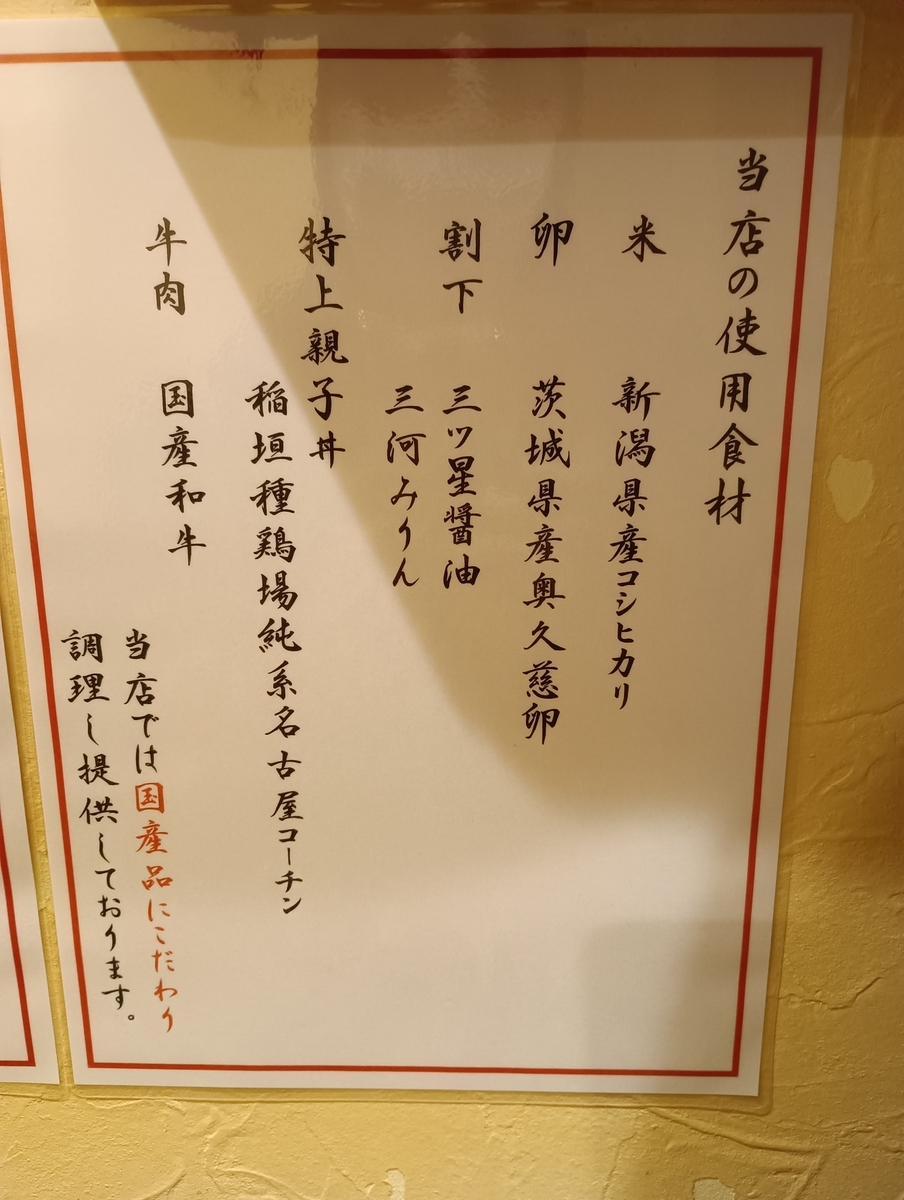 当店の使用食材
米 新潟県産コシヒカリ
卵 茨城県産奥久慈卵
割下 三ツ星醤油
三河みりん
特上親子丼
稲垣種鶏場純系名古屋コーチン
牛肉 国産和牛
当店では国産品にこだわり
調理し提供しております。